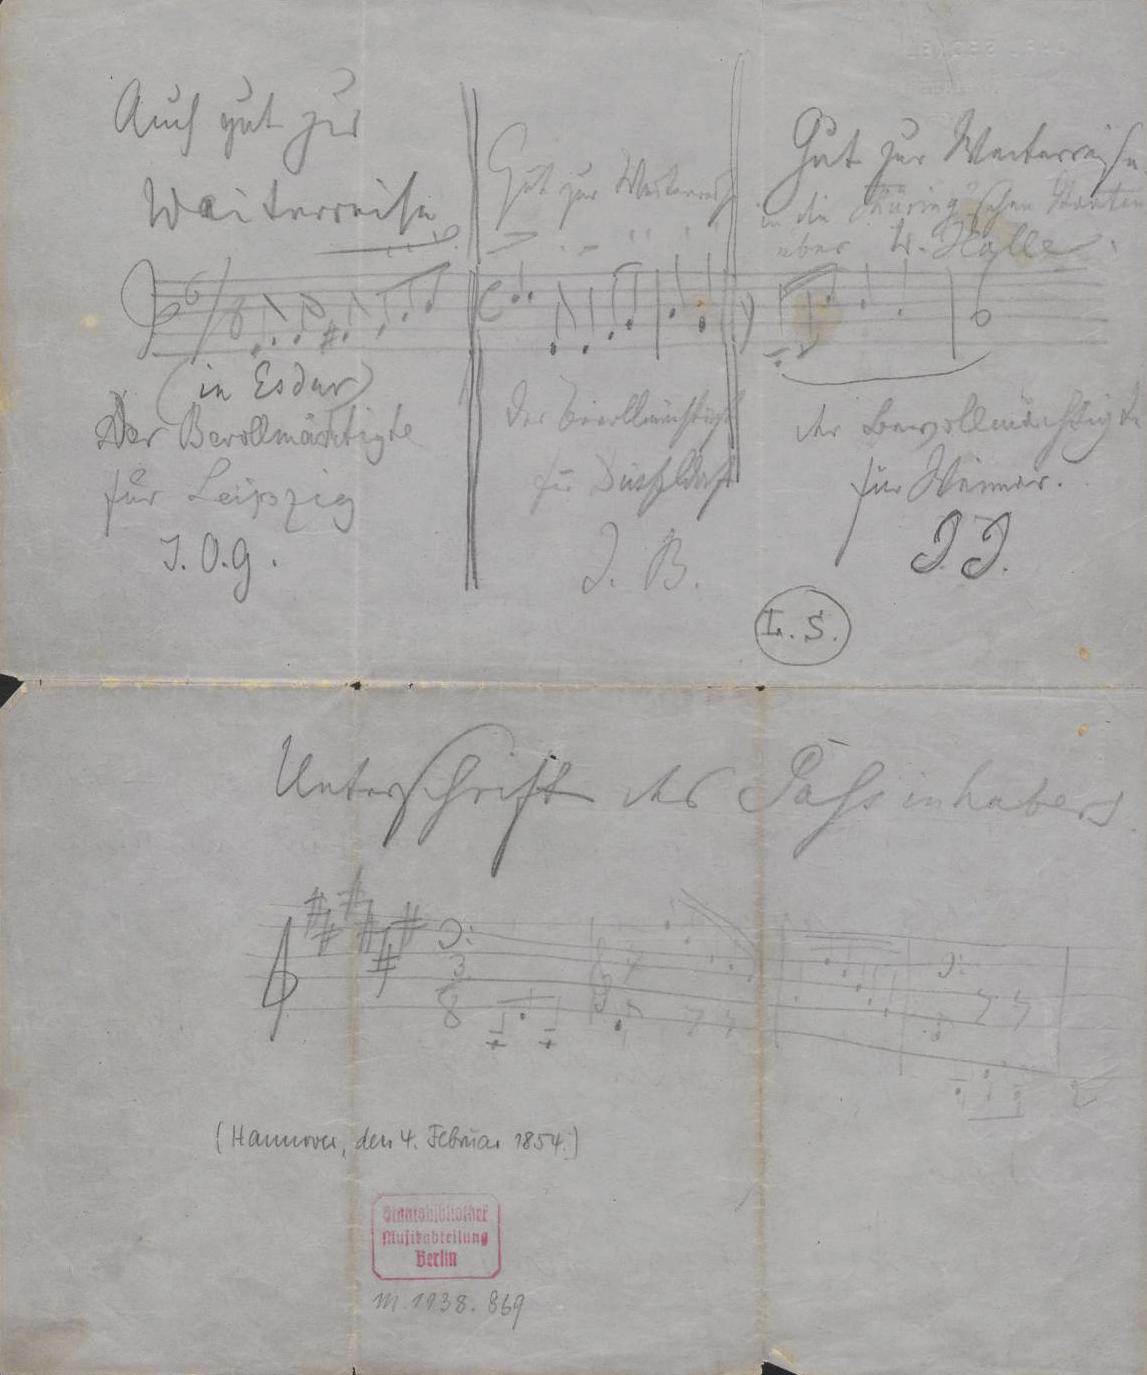 Auch gut zur
Weiterreise
(in Esdur)
Der Bevollmächtigte
für Leipzig
J. O. G.
Gut zur Weiterreise
Der Bevollmächtigte
für Düsseldorf
J. B.
Gut zur Weiterreise
in die Thüring'schen Staaten
über Halle.
der Bevollmächtigte
für Weimar.
J. J.
L. S.
Unterschrift des Paßinhabers
3
8
(Hannover, den 4. Februar 1854.)
Staatsbibliothek
Musikabteilung
Berlin
M. 1938. 869